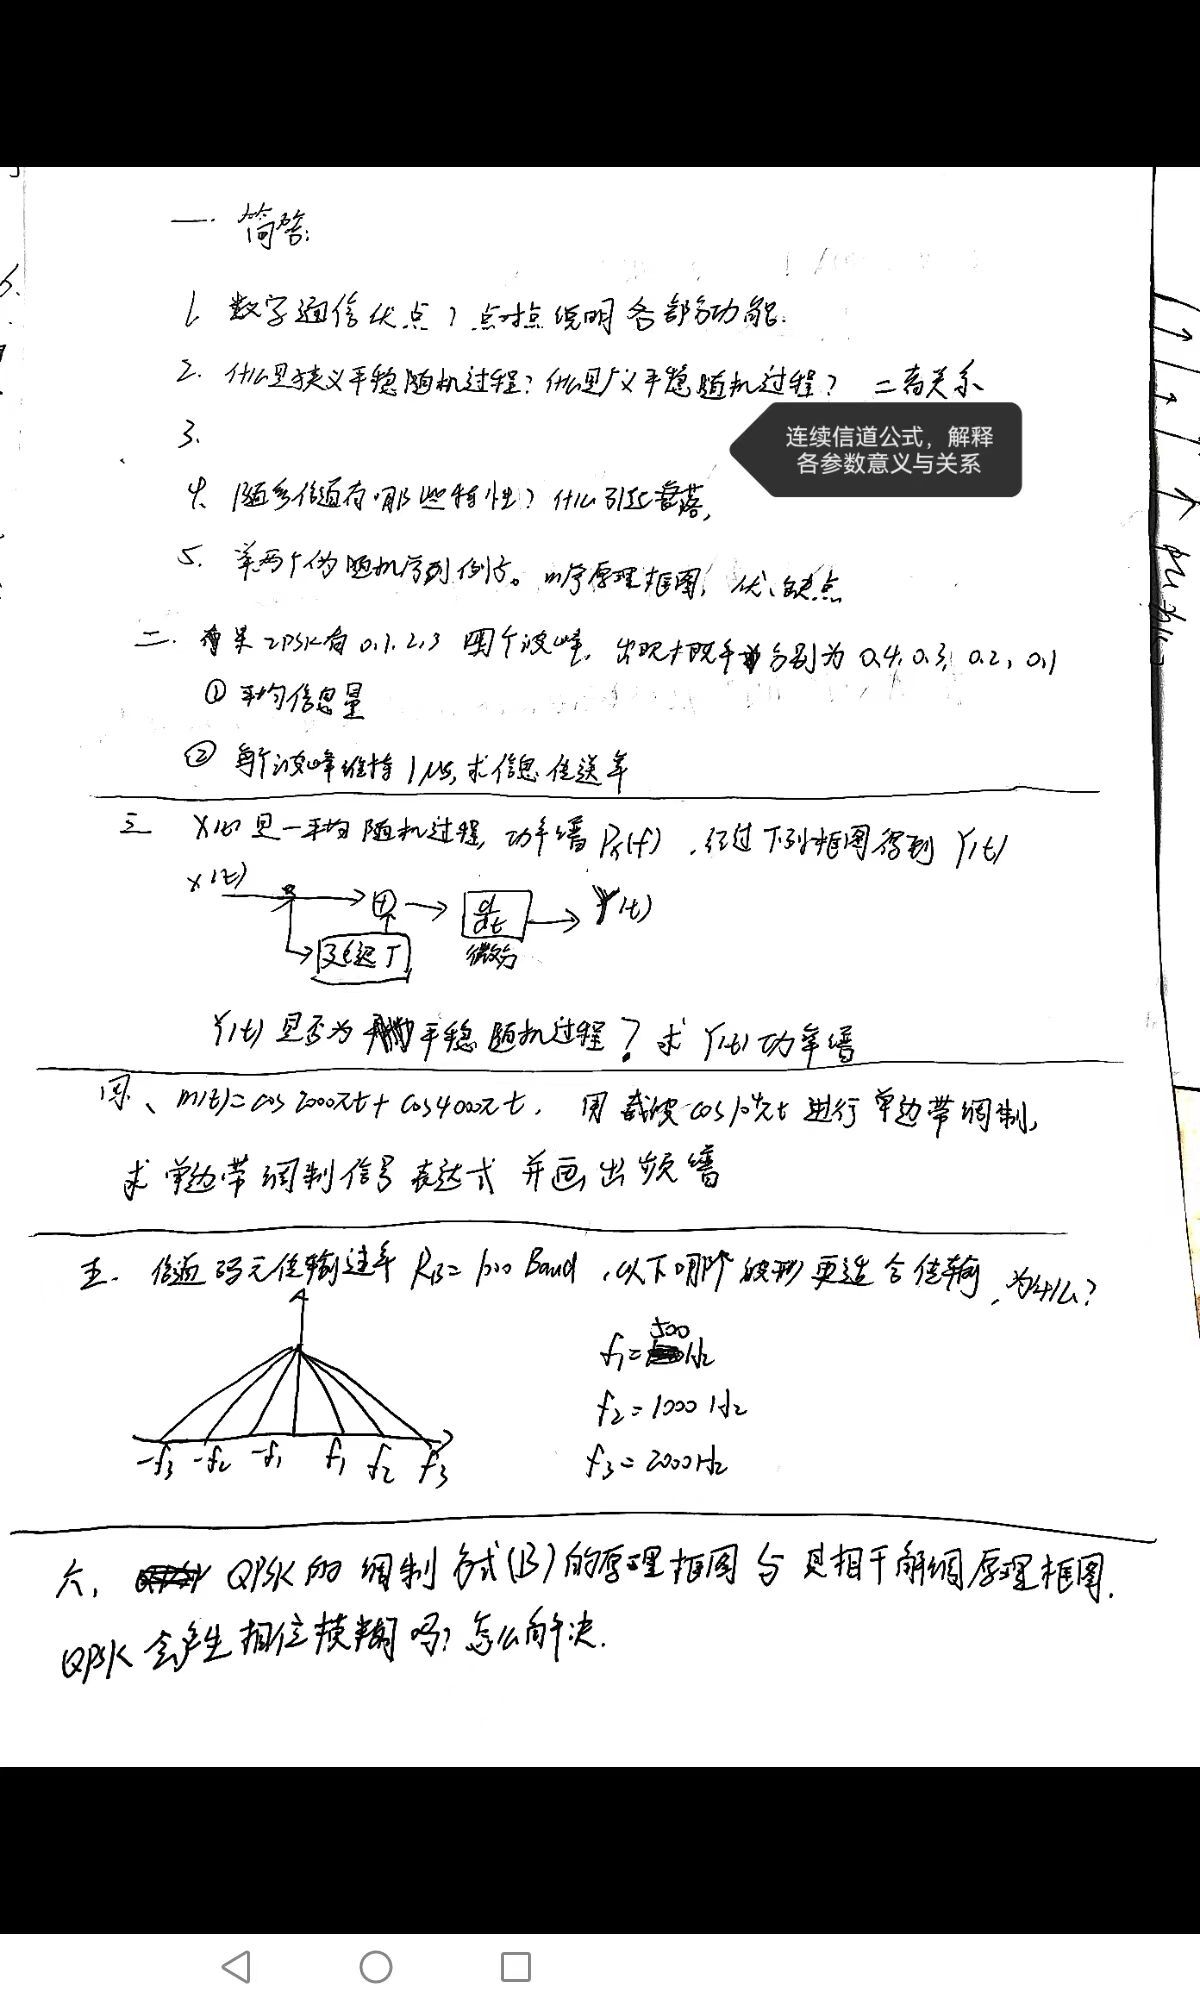 一. 简答:
1. 数字通信优点？点对点说明各部分功能.
2. 什么是狭义平稳随机过程？什么是广义平稳随机过程？ 二者关系
3.
连续信道公式，解释
各参数意义与关系
4. 随参信道有哪些特性？什么引起衰落,
5. 举两个伪随机序列例子。m序原理框图, 优、缺点
二. 有 2PSK有 0.1.2.3 四个波峰, 出现概率分别为 0.4, 0.3, 0.2, 0.1
① 平均信息量
② 每个波峰维持1μs, 求信息传送率
三 X(t)是一平均随机过程, 功率谱Px(f), 经过下列框图得到Y(t)
X(t)
+
d/dt
Y(t)
延迟T
微分
Y(t)是否为平稳随机过程？求Y(t)功率谱
四、m(t)=cos2000πt+cos4000πt, 用载波cos10⁴πt进行单边带调制,
求单边带调制信号表达式并画出频谱
五. 信道码元传输速率 RB= Baud, 以下哪个波形更适合传输, 为什么?
f₁=500Hz
f₂=1000Hz
f₃=2000Hz
-f₃ -f₂ -f₁ f₁ f₂ f₃
六, QPSK的调制方式(B)的原理框图与其相干解调原理框图.
QPSK会产生相位模糊吗? 怎么解决.